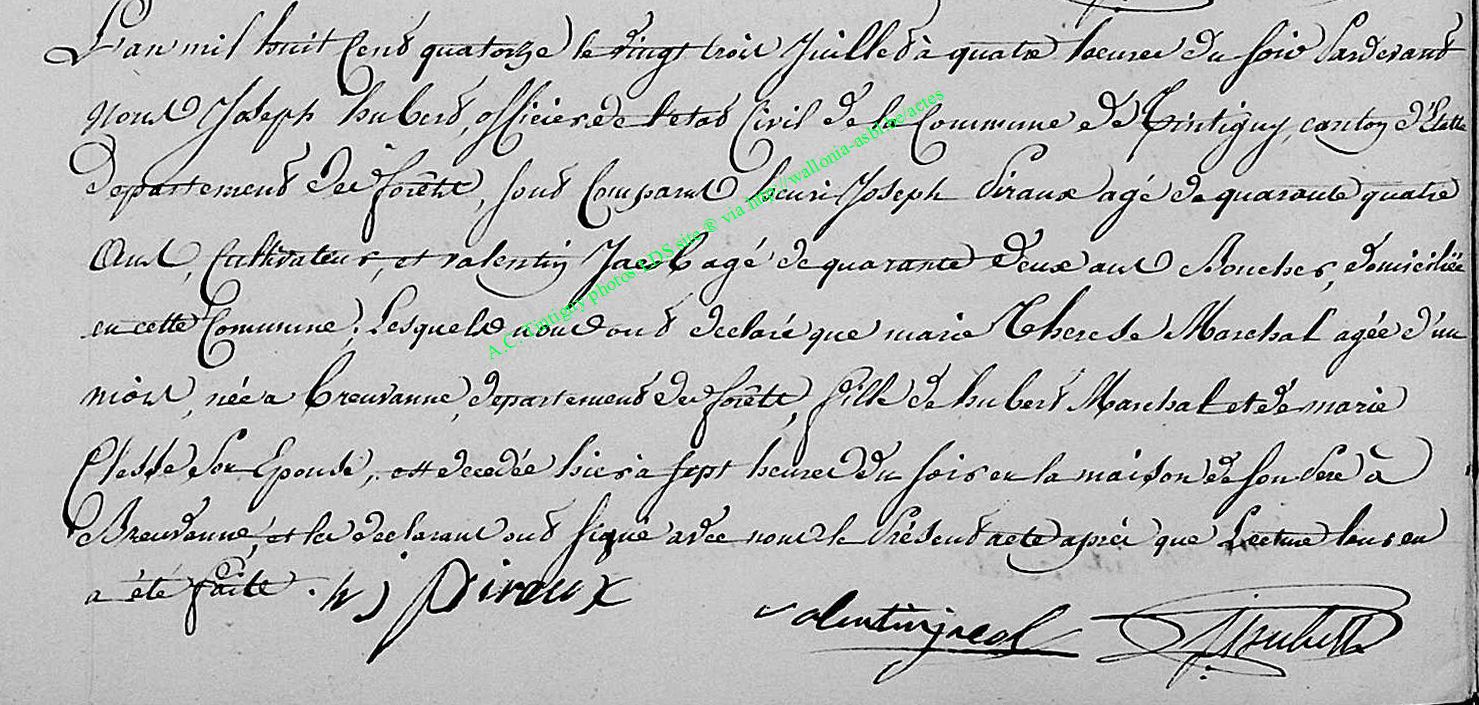 L'an mil huit cent quatorze le vingt trois Juillet à quatre heures du soir Pardevant
nous Joseph hubert, officier de l'etat Civil de la Commune de Tintigny, canton d'Etalle
departement des forêts, sont Comparus henri Joseph Piraux agé de quarante quatre
ans, Cultivateur, et valentin Jacob agé de quarante deux ans Boucher, domiciliés
en cette Commune; Lesquels nous ont declaré que marie Therese Marchal agée d'un
mois, née a breuvanne, departement des forêts, fille de hubert Marchal et de marie
Clesse son Epouse, est decedée hier à sept heures du soir en la maison de son Pere à
Breuvanne, et les declarants ont signé avec nous le Présent acte après que Lecture leur en
a été faite. h J Piraux
valentin jacob
J hubert
A.C. Tintigny photos EDS site ® via http://wallonia-asbl.be/actes